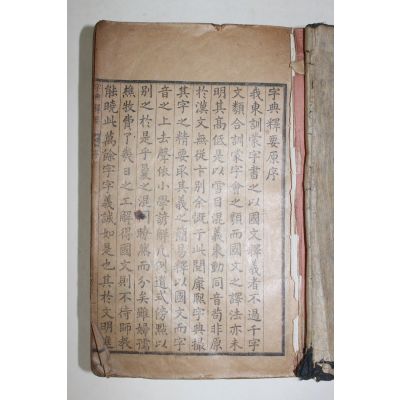 字典釋要原序
我東訓蒙字書之以國文釋義者不過千字
文類合訓蒙字會之類而國文之譯法亦未
明其高低是以雪目混義東動同音苟非原
於漢文無從卞別余慨于此閱康熙字典撮
其字之精要取其義之簡易釋以國文而字
音之上去聲依小學諺解凡例遺式傍點以
別之於是乎曩之混 瞭然而分矣雖婦孺
樵牧費了幾日之工解得國文則不待師教
能曉此萬餘字字義誠如是也其於文明進